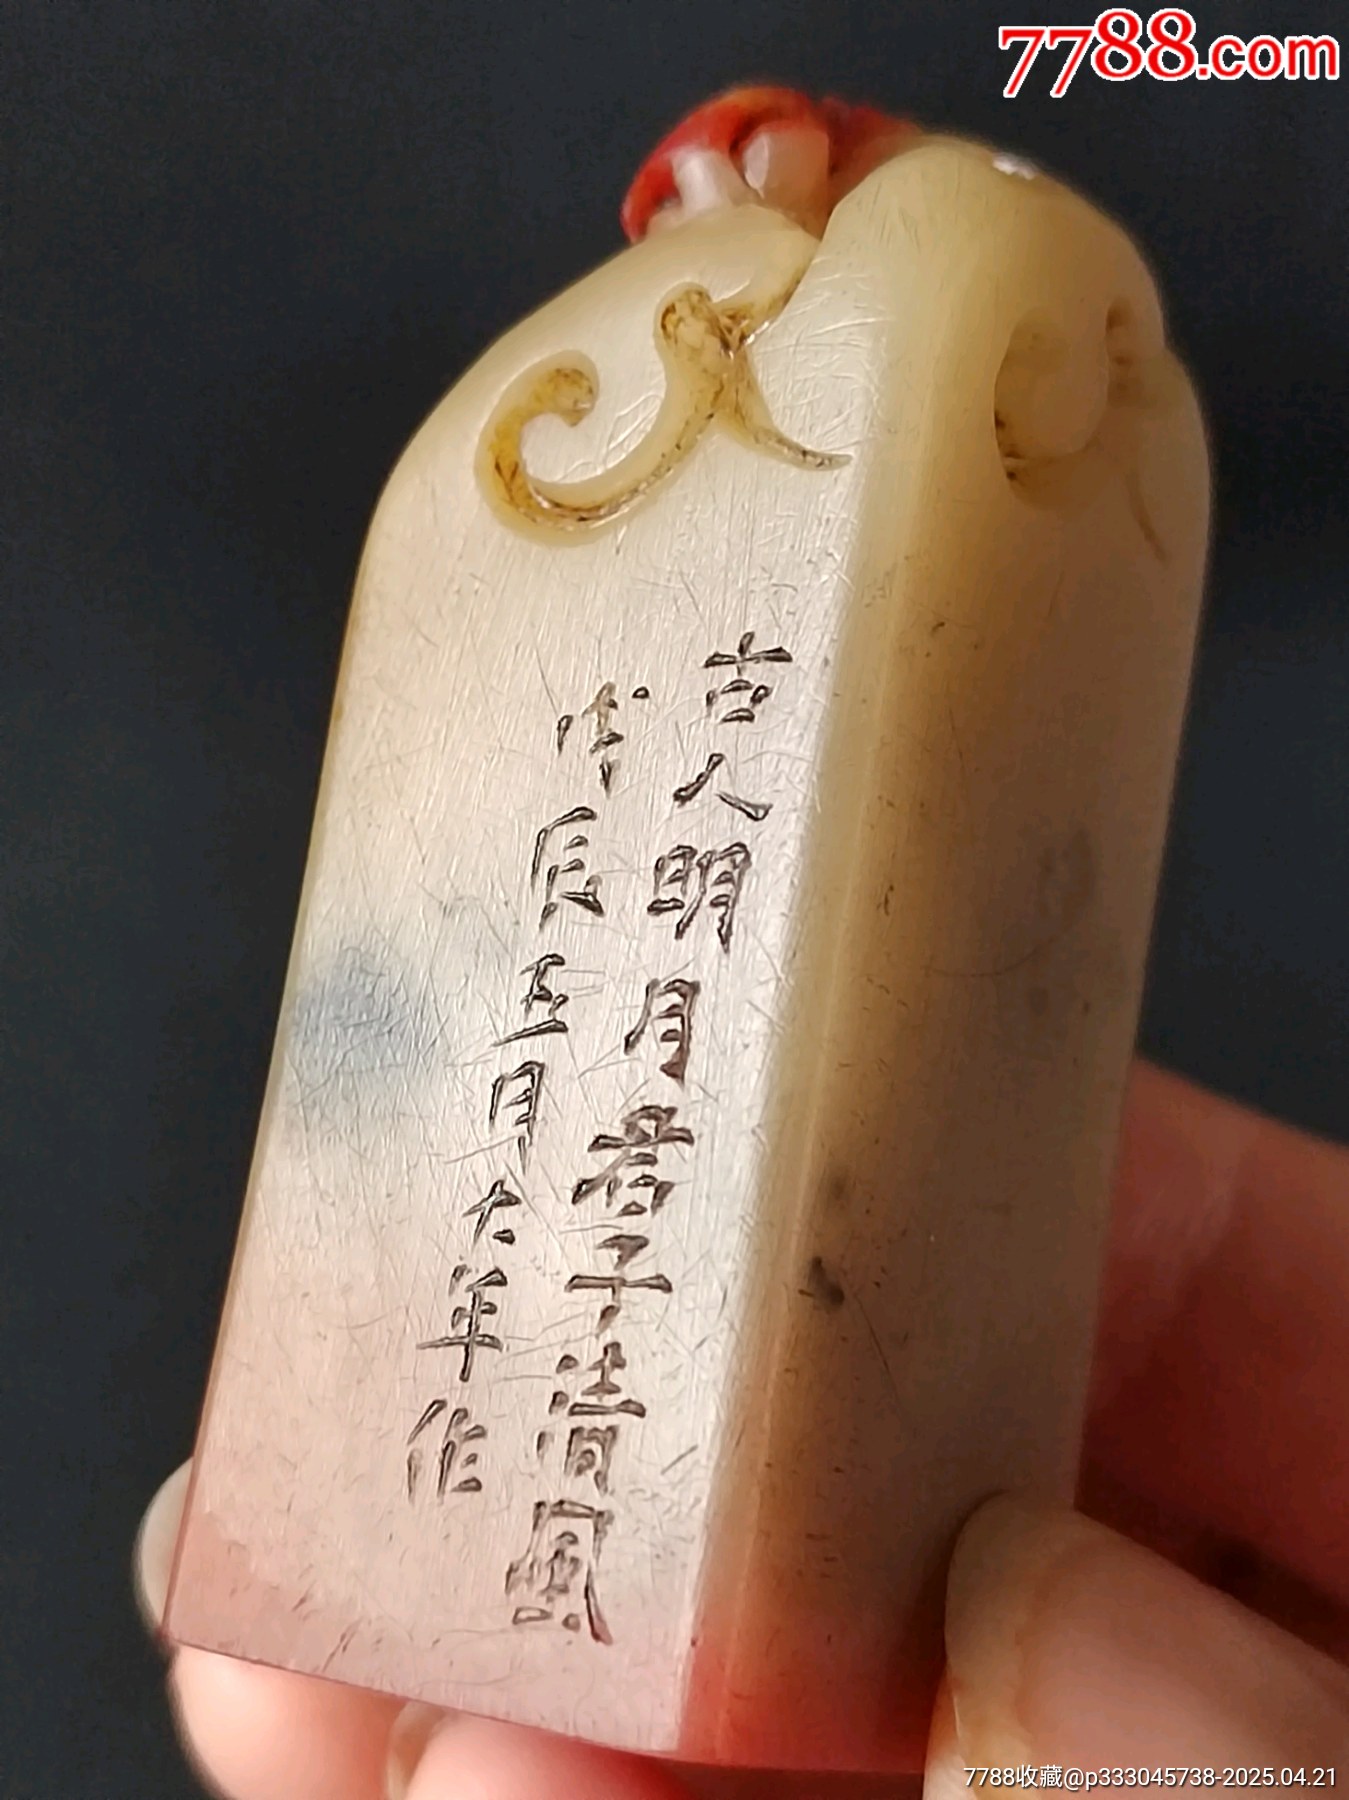 7788.com
古人明月君子清風
辰五月大年作
7788收藏@p333045738-2025.04.21